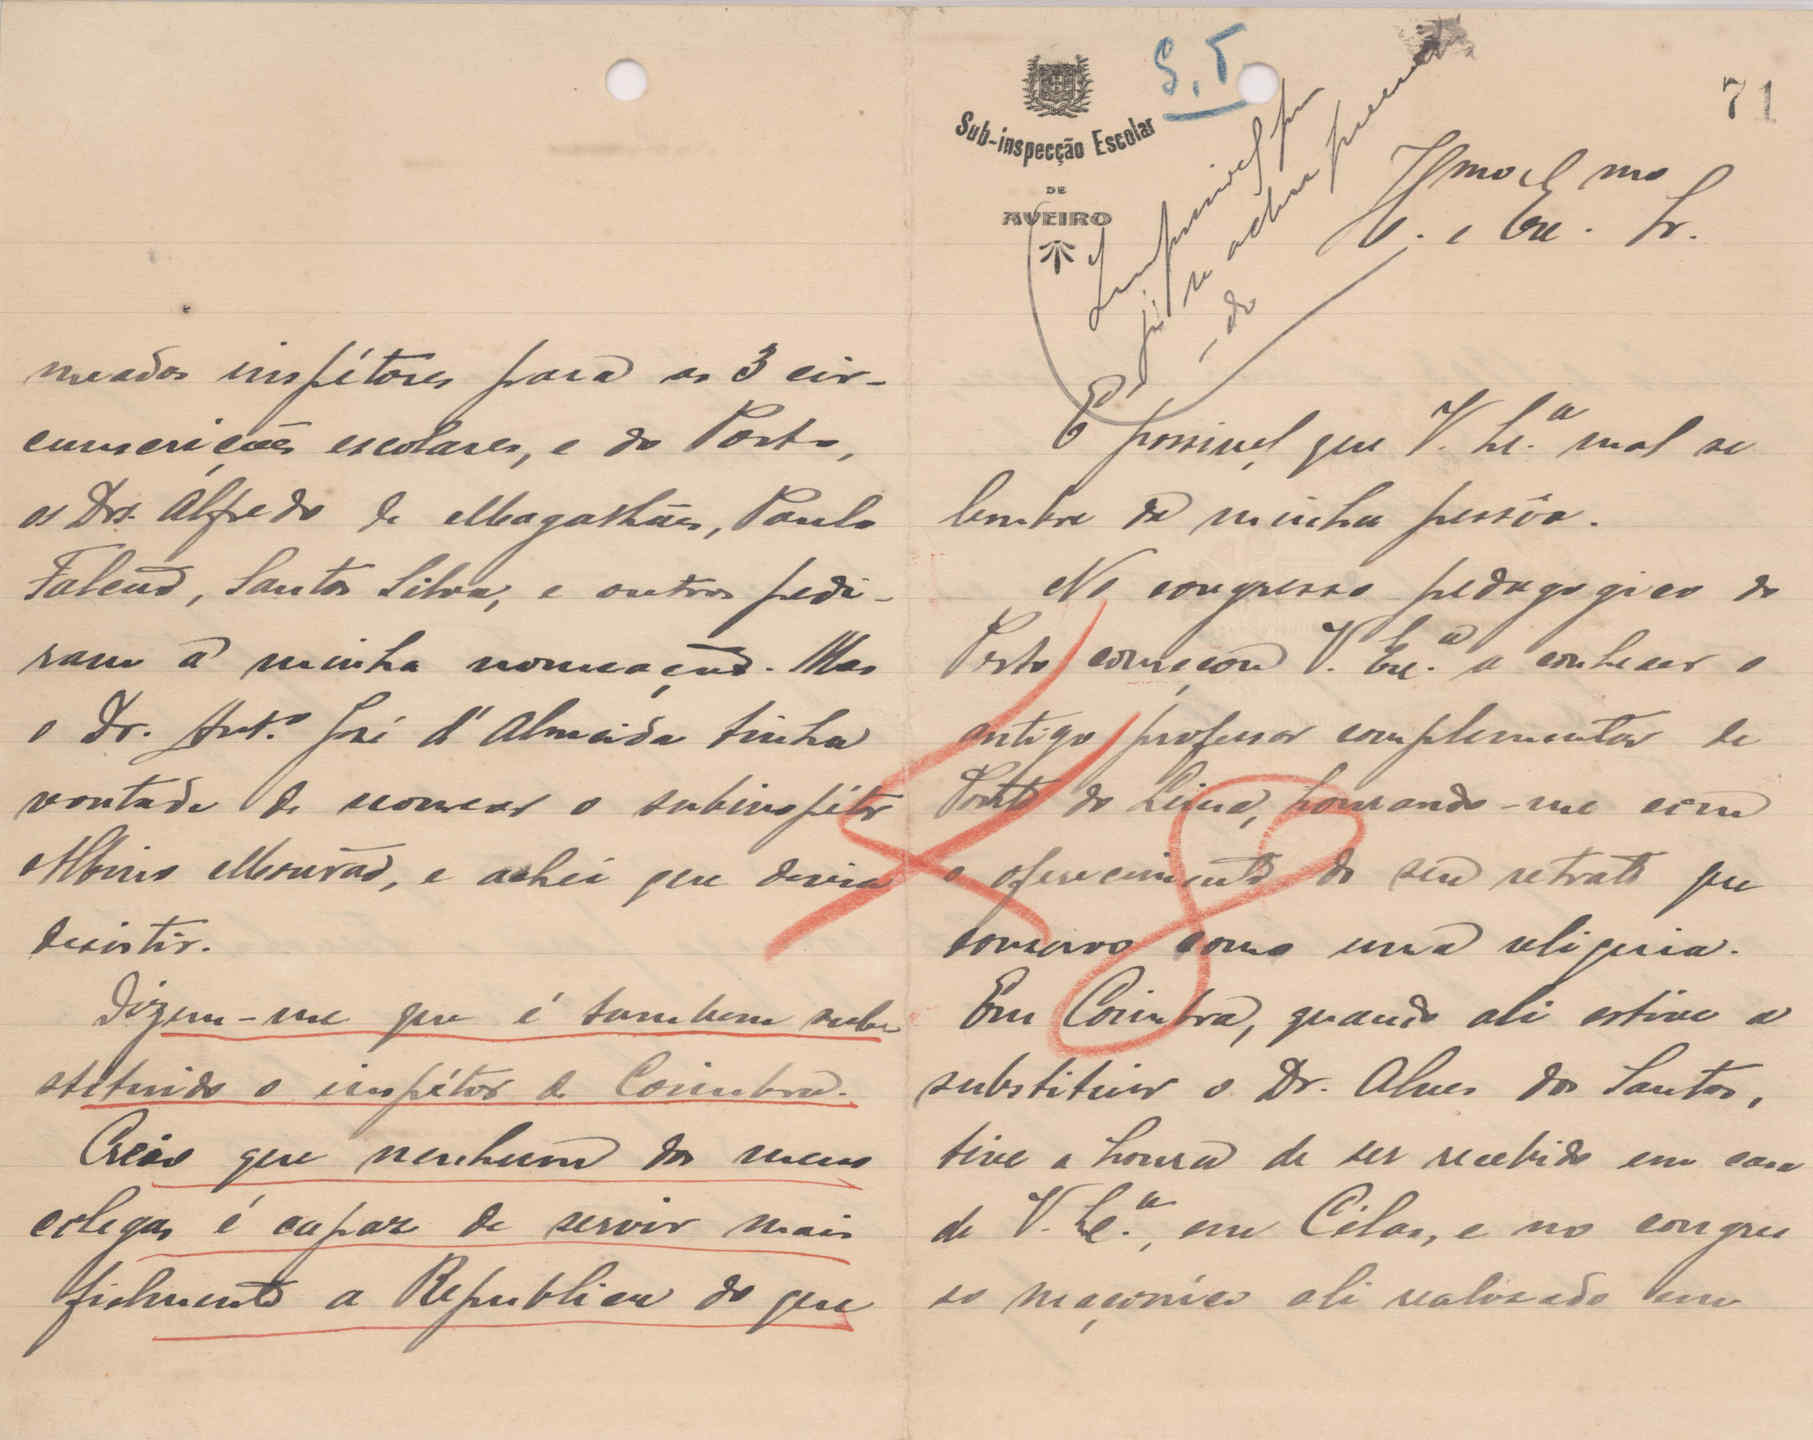 meados inspétores para as 3 cir-
cunscrições escolares, e do Porto,
os Drs. Alfredo de Magalhães, Paulo
Falcão, Santos Silva, e outros pedi-
ram a minha nomeação. Mas
o Dr. Antº José d'Almeida tinha
vontade de nomear o subinspétor
Albino Mourão, e achei que devia
desistir.
Dizem-me que é tambem sub-
stituido o inspétor de Coimbra.
Creio que nenhum dos meus
colegas é capaz de servir mais
fielmente a Republica do que
S. T.
71
Sub-inspecção Escolar
DE
AVEIRO
já se acha preenchi
-do
Ilmo e Exmo
Sr.
É possivel que V. Ex.ª mal se
lembre da minha pessôa.
No congresso pedagogico do
Porto começou V. Exc.ª a conhecer o
antigo professor complementar de
Ponte do Lima, honrando-me com
o oferecimento do seu retrato que
conservo como uma reliquia.
Em Coimbra, quando ali estive a
substituir o Dr. Alves dos Santos,
tive a honra de ser recebido em casa
de V. Ex.ª, em Celas, e no congres
so maçonico ali realisado em